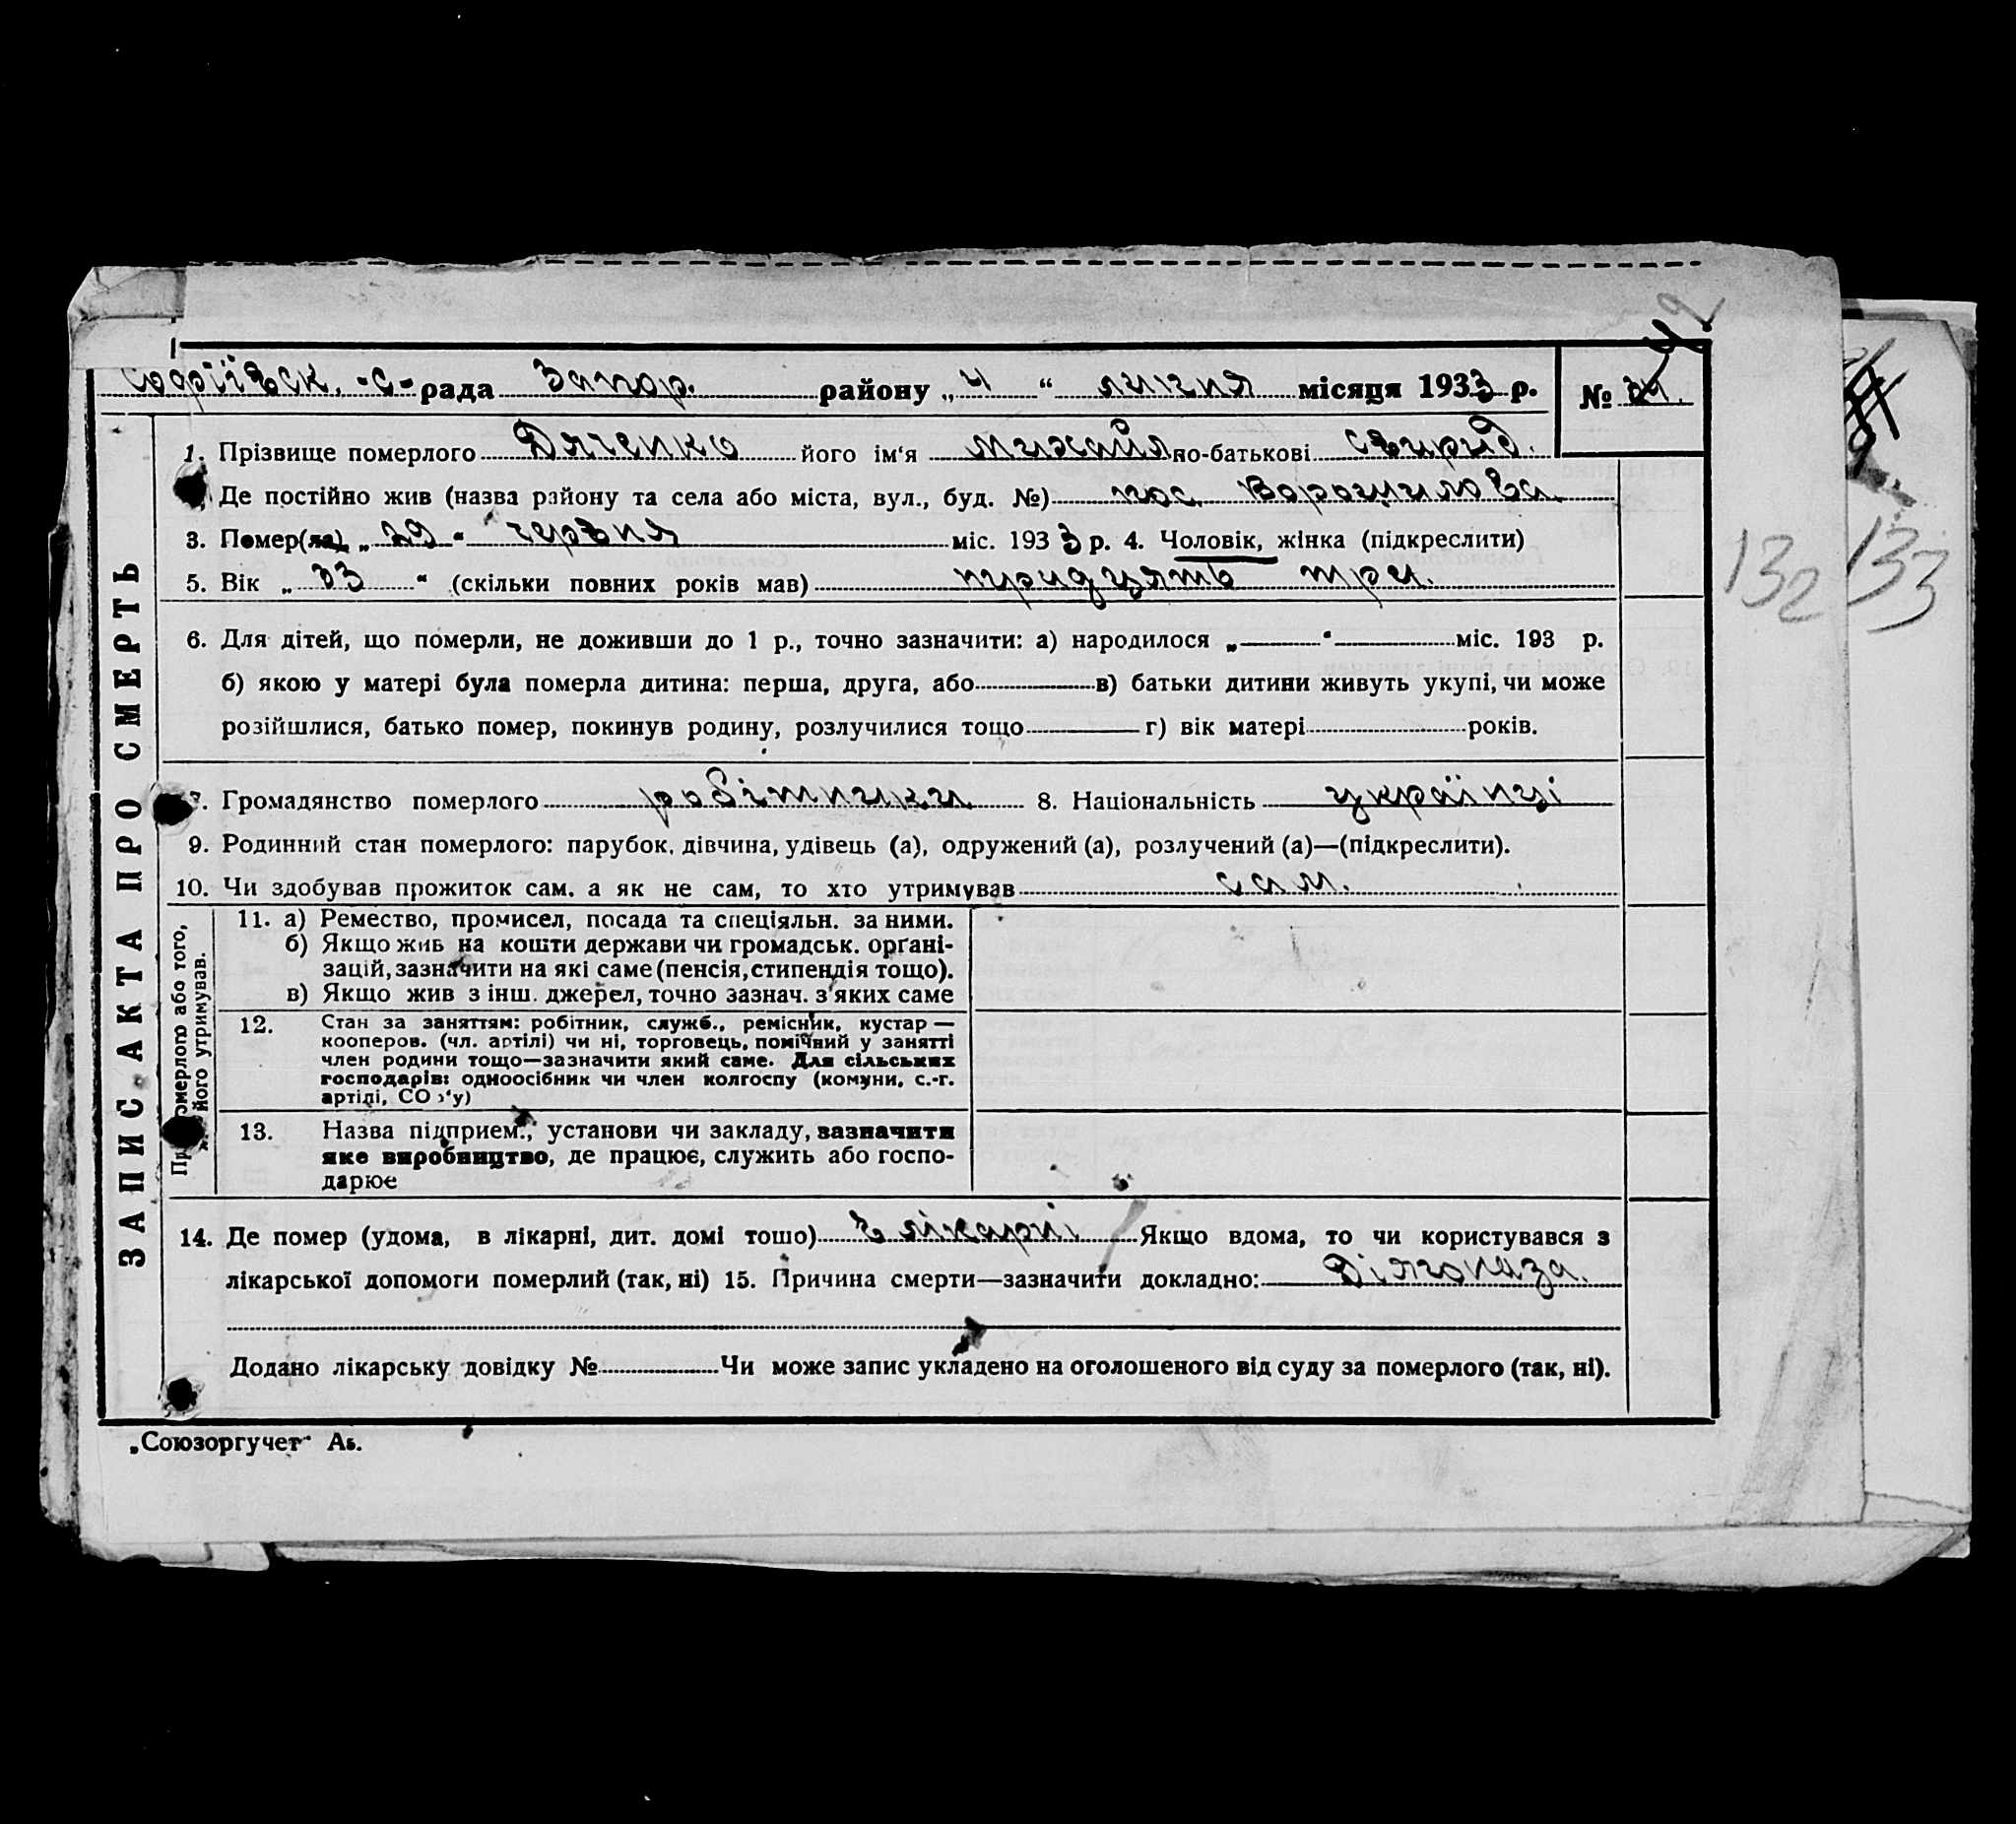 Софіївск. -с- рада Запор. району „ 4 “ липня місяця 1933 р. №
1. Прізвище померлого Дяченко його ім‘я Михайло по-батькові Свирид.
Де постійно жив (назва району та села або міста, вул., буд. №) пос. Ворошилова
3. Помер(ла) „ 29 “ червня міс. 1933 р. 4. Чоловік, жінка (підкреслити)
5. Вік „ 33 “ (скільки повних років мав) тридцять три.
6. Для дітей, що померли, не доживши до 1 р., точно зазначити: а) народилося „ “ міс. 193 р.
б) якою у матері була померла дитина: перша, друга, або в) батьки дитини живуть укупі, чи може
розійшлися, батько помер, покинув родину, розлучилися тощо г) вік матері років.
7. Громадянство померлого робітники 8. Національність українці
9. Родинний стан померлого: парубок, дівчина, удівець (а), одружений (а), розлучений (а)—(підкреслити).
10. Чи здобував прожиток сам. а як не сам, то хто утримував сам.
11. а) Ремество, промисел, посада та спеціяльн. за ними.
б) Якщо жив на кошти держави чи громадськ. орґані-
зацій, зазначити на які саме (пенсія, стипендія тощо).
в) Якщо жив з інш. джерел, точно зазнач. з яких саме
12. Стан за заняттям: робітник, служб., ремісник, кустар—
кооперов. (чл. артілі) чи ні, торговець, помічний у занятті
член родини тощо—зазначити який саме. Для сільських
господарів: одноосібник чи член колгоспу (комуни, с.-г.
артілі, СО з‘у)
13. Назва підприєм., установи чи закладу, зазначити
яке виробництво, де працює, служить або госпо-
дарює
померлого або того,
його утримував.
14. Де помер (удома, в лікарні, дит. домі тошо) в лікарні Якщо вдома, то чи користувався з
лікарської допомоги померлий (так, ні) 15. Причина смерти—зазначити докладно:
Додано лікарську довідку № Чи може запис укладено на оголошеного від суду за померлого (так, ні).
ЗАПИС АКТА ПРО СМЕРТЬ
„Союзоргучет“ Аб.
132
133